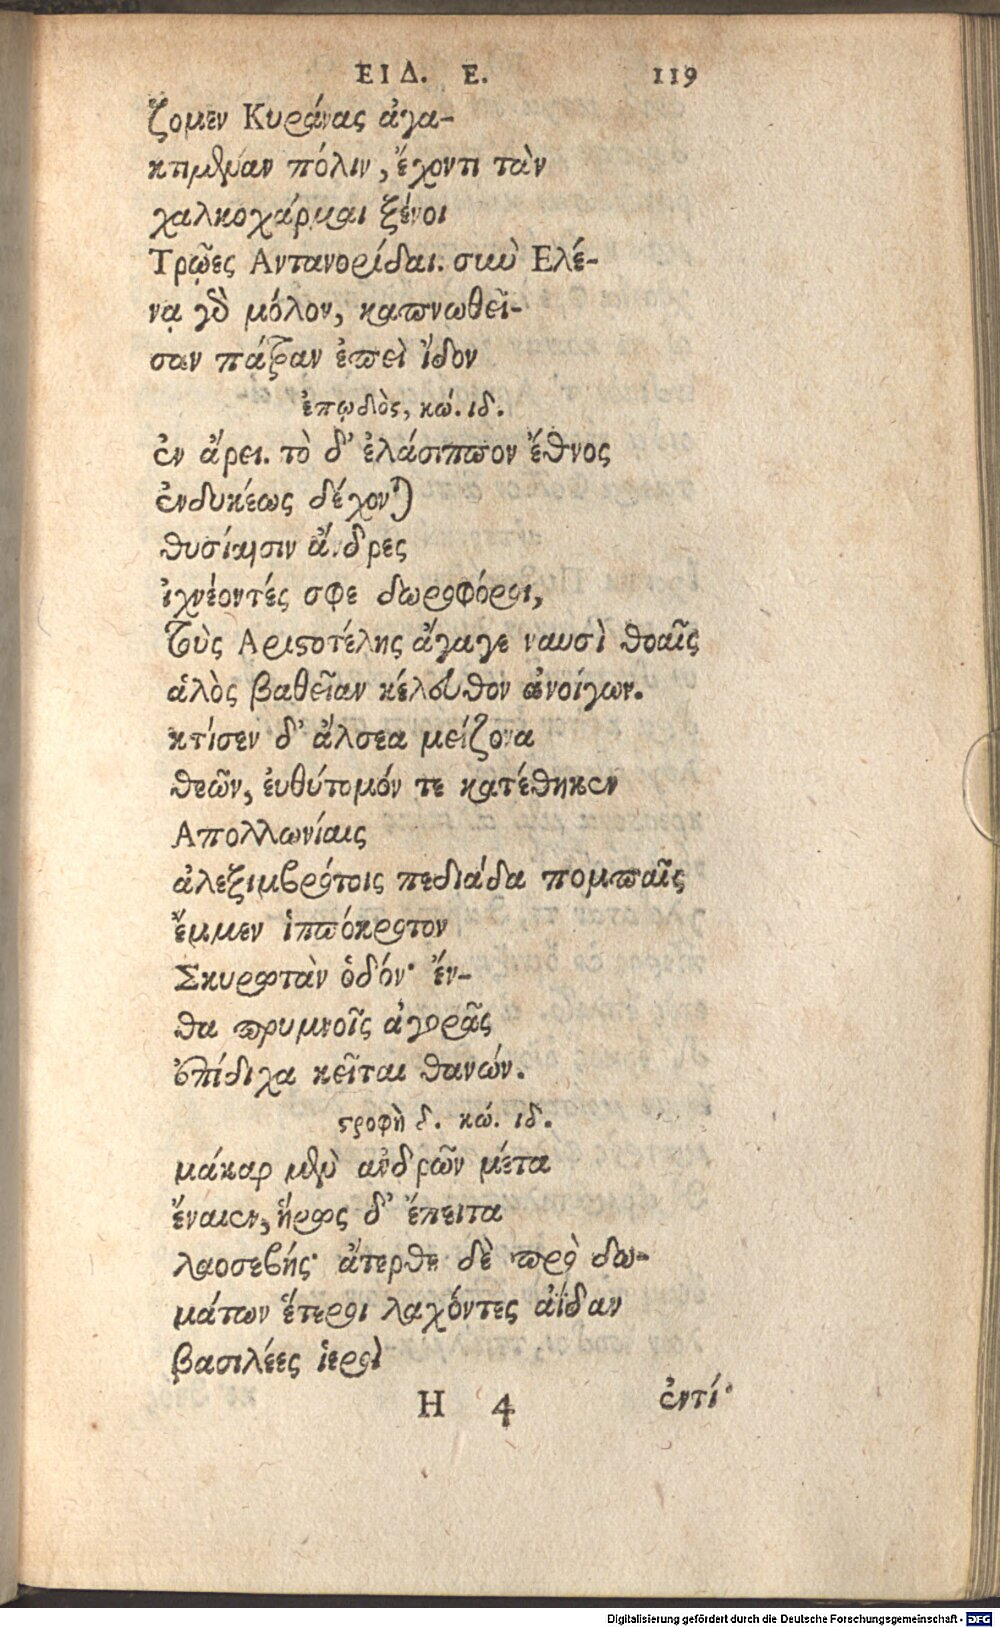 ΕΙΔ. Ε. 119
ζομεν Κυράνας ἀγα-
κτιμέναν πόλιν, ἔχοντι τὰν
χαλκοχάρμαι ξένοι
Τρῶες Αντανορίδαι. σὺν Ελέ-
νᾳ γὰρ μόλον, καπνωθεῖ-
σαν πάτραν ἐπεὶ ἴδον
ἐπῳδὸς, κώ. ιδ.
ἐν ἄρει. τὸ δ' ἐλάσιππον ἔθνος
ἐνδυκέως δέχονται
θυσίαισιν ἄνδρες
ἰχνέοντές σφε δωροφόροι,
τοὺς Αριστοτέλης ἄγαγε ναυσὶ θοαῖς
ἁλὸς βαθεῖαν κέλευθον ἀνοίγων.
κτίσεν δ' ἄλσεα μείζονα
θεῶν, ἐυθύτομόν τε κατέθηκεν
Απολλωνίαις
ἀλεξιμβρότοις πεδιάδα πομπαῖς
ἔμμεν ἱππόκροτον
Σκυρωτὰν ὁδόν· ἔν-
θα πρυμνοῖς ἀγορᾶς
ἐπίδιχα κεῖται θανών.
στροφὴ δ. κώ. ιδ.
μάκαρ μὲν ἀνδρῶν μέτα
ἔναιεν, ἥρως δ' ἔπειτα
λαοσεβής· ἄτερθε δὲ πρὸ δω-
μάτων ἕτεροι λαχόντες ἀΐδαν
βασιλέες ἱεροὶ
Η 4 ἐντί·
Digitalisierung gefördert durch die Deutsche Forschungsgemeinschaft - DFG